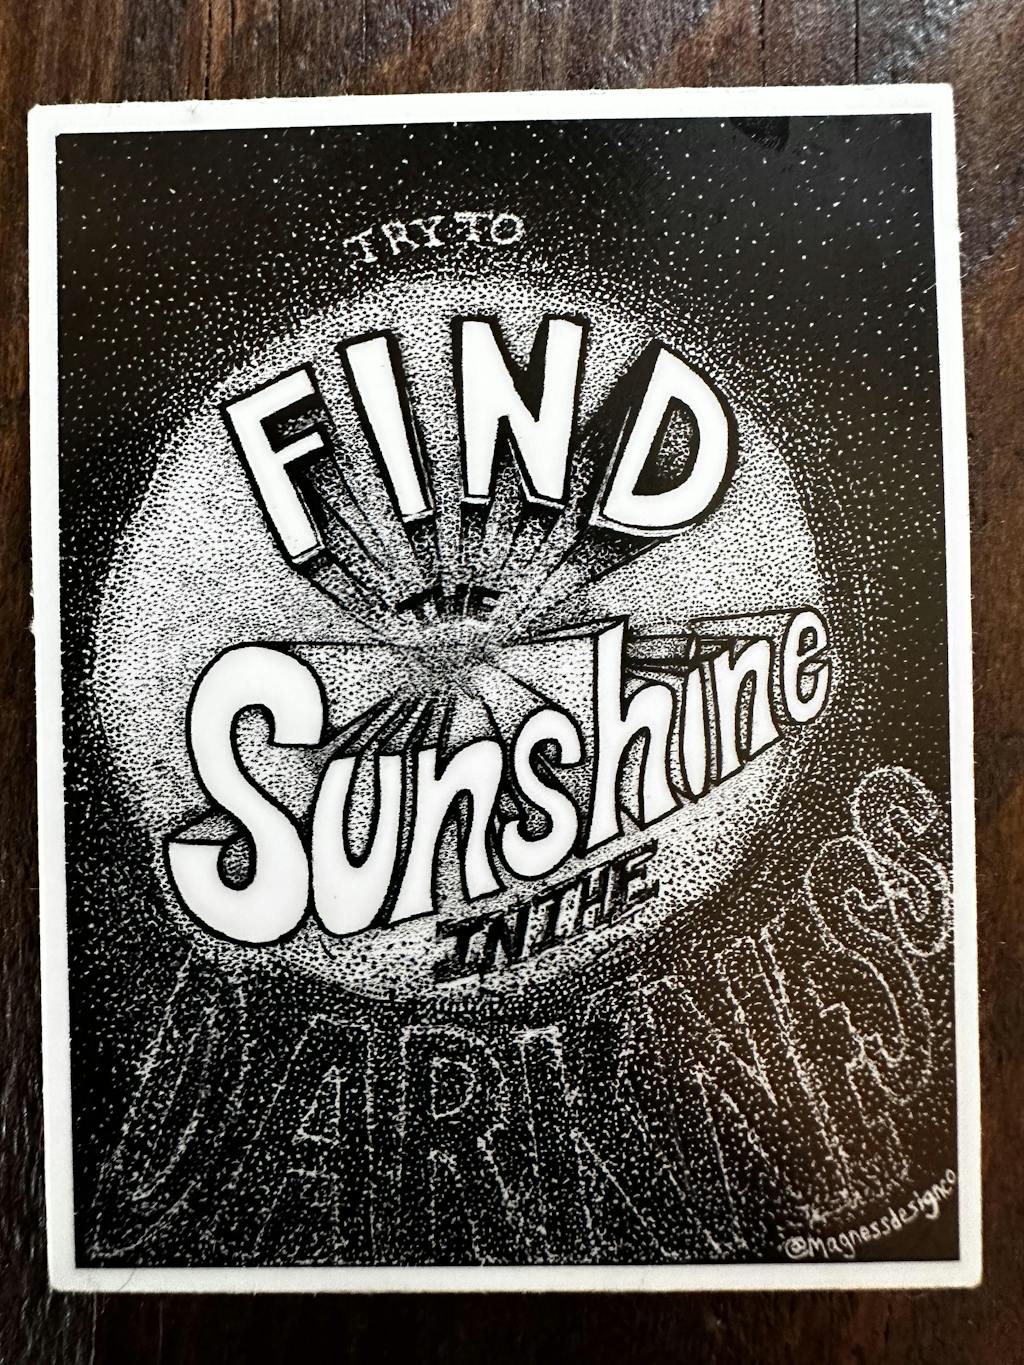 TRY TO
FIND
THE
Sunshine
IN THE
DARKNESS
@Magnessdesignco